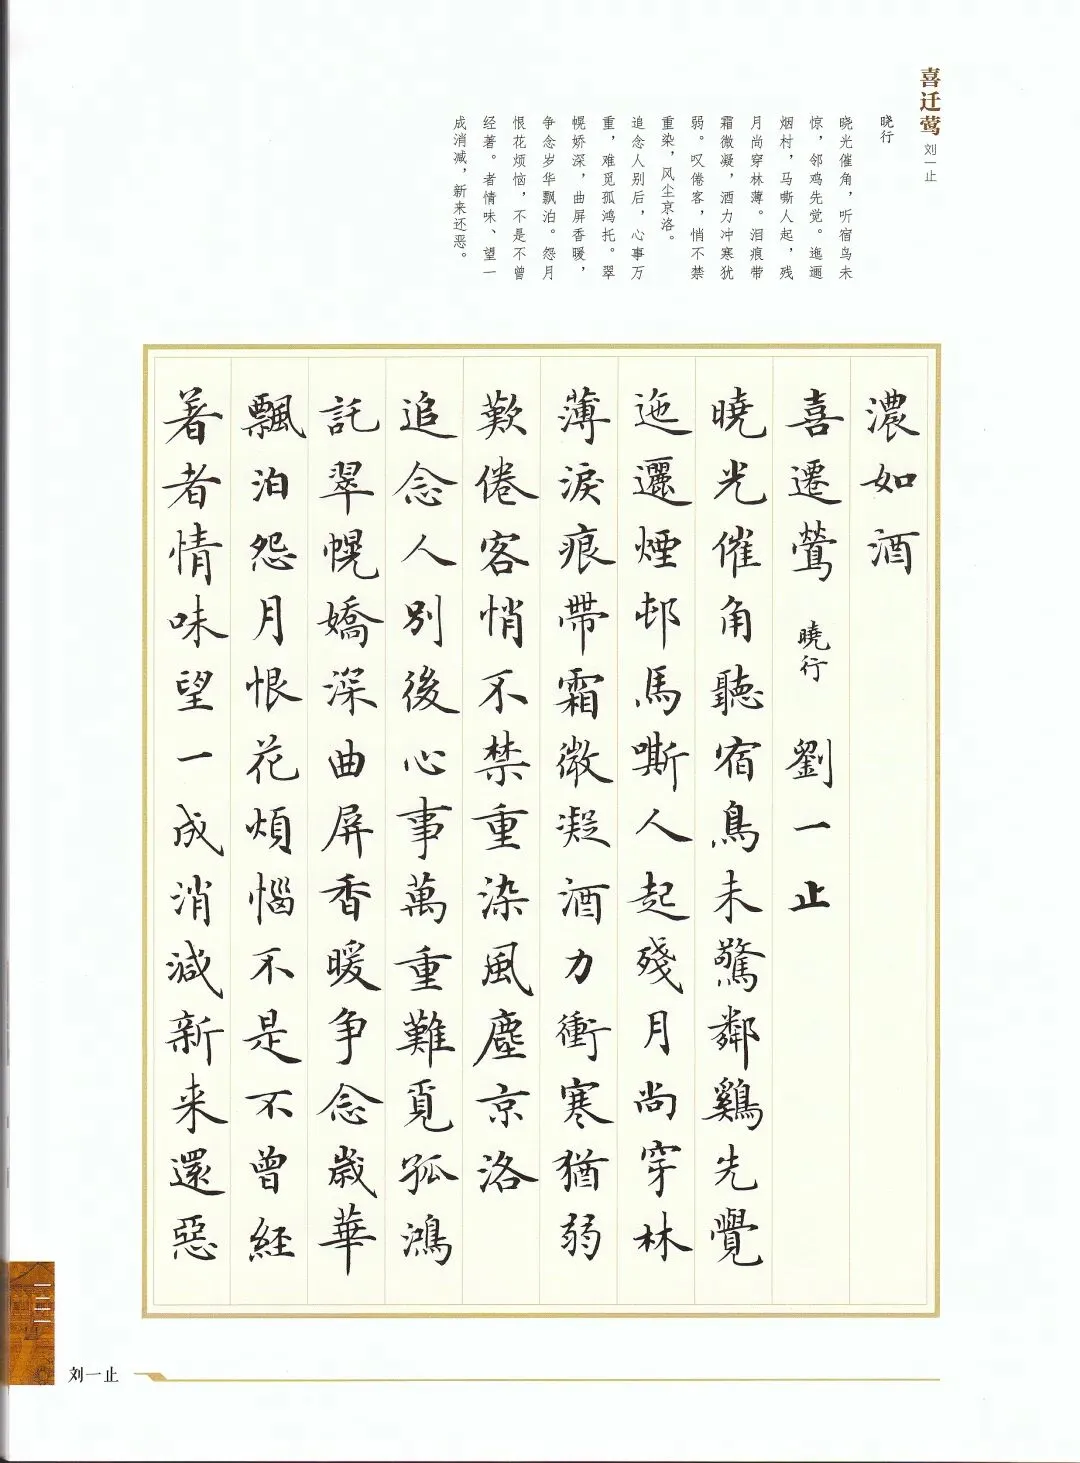 喜迁莺
刘一止
晓行
晓光催角，听宿鸟未
惊，邻鸡先觉。迤逦
烟村，马嘶人起，残
月尚穿林薄。泪痕带
霜微凝，酒力冲寒犹
弱。叹倦客，悄不禁
重染，风尘京洛。
追念人别后，心事万
重，难觅孤鸿托。翠
幌娇深，曲屏香暖，
争念岁华飘泊。怨月
恨花烦恼，不是不曾
经著。者情味、望一
成消减，新来还恶。
濃如酒
喜遷鶯 曉行 劉一止
曉光催角聽宿鳥未驚鄰鷄先覺
迤邐煙邨馬嘶人起殘月尚穿林
薄淚痕帶霜微凝酒力衝寒猶弱
歎倦客悄不禁重染風塵京洛
追念人別後心事萬重難覓孤鴻
託翠幌嬌深曲屏香暖争念歲華
飄泊怨月恨花煩惱不是不曾經
著者情味望一成消減新来還惡
刘一止